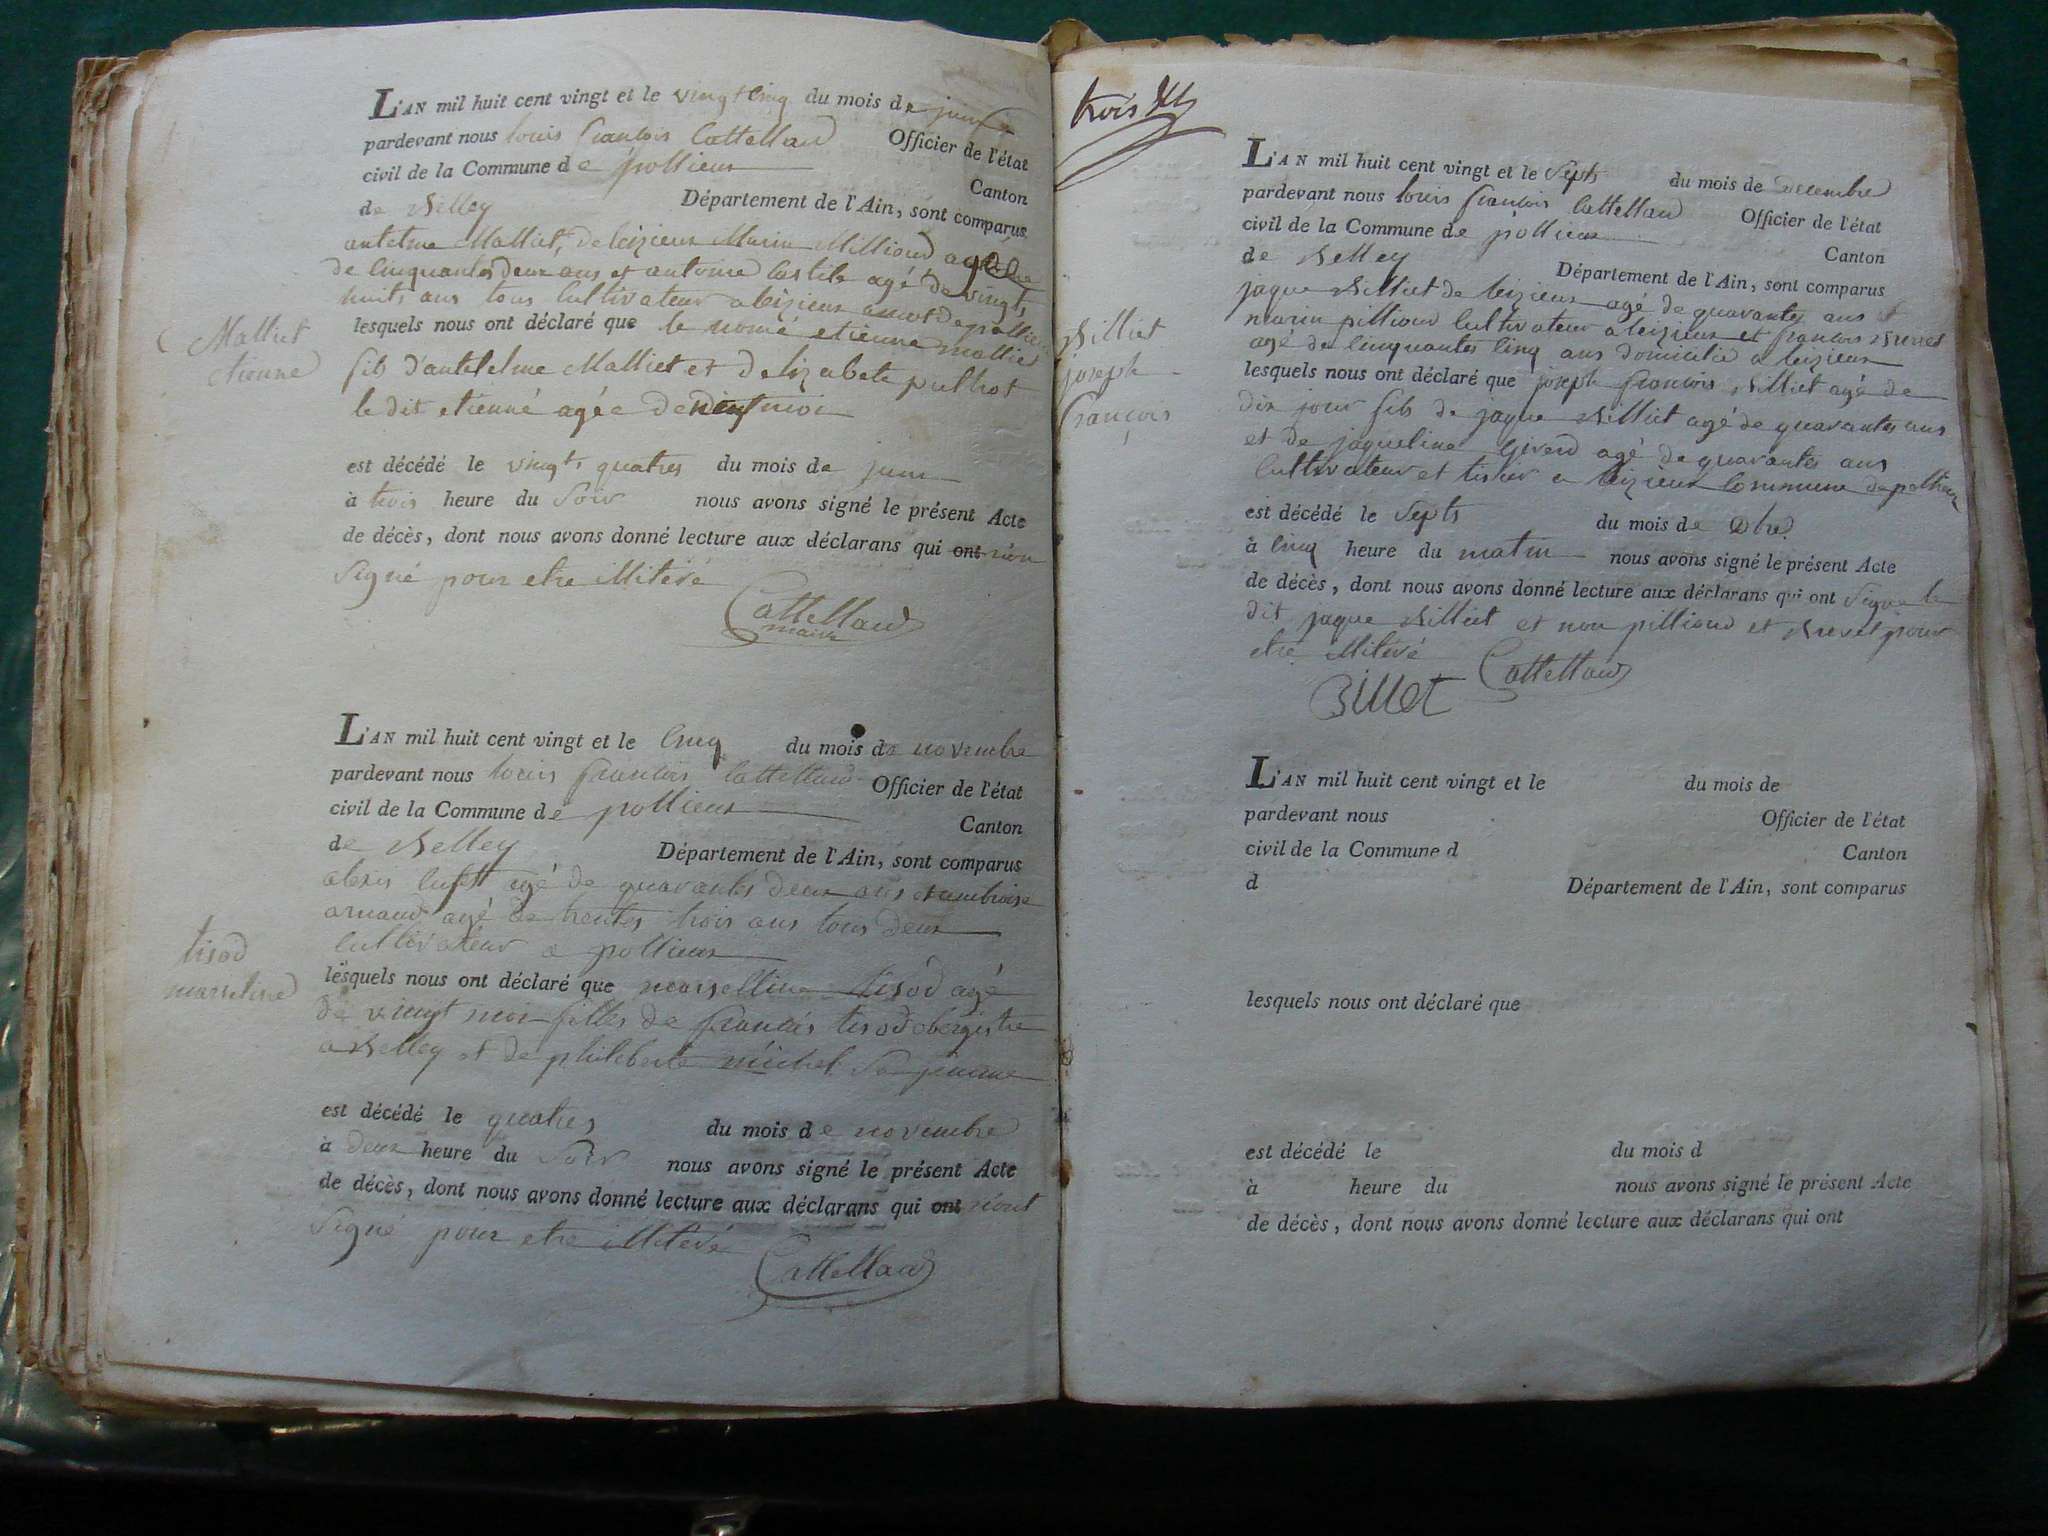 L'AN mil huit cent vingt et le vingt cinq du mois de juin
pardevant nous louis francois Cattelland Officier de l'état
civil de la Commune de pollieux Canton
de Belley Département de l'Ain, sont comparus
antelme Malliet, de leizieux Marin Millioud agé
de cinquantes deux ans et antoine agé de vingt
huits ans tous cultivateur a leizieux de pollieux
lesquels nous ont déclaré que le nomé etienne mallies
fils d'antelelme Malliet et d'elizabete
le dit etienné agée de moi
est décédé le vingt quatres du mois de juin
à trois heure du Soir nous avons signé le présent Acte
de décès, dont nous avons donné lecture aux déclarans qui ont non
Signé pour etre illiteré
Cattelland
maire
Malliet
etienne
L'AN mil huit cent vingt et le cinq du mois de novembre
pardevant nous louis francois Cattelland Officier de l'état
civil de la Commune de pollieux Canton
de Belley Département de l'Ain, sont comparus
alexis agé de quarantes deux ans et ambroise
arnaud agé de trentes trois ans tous deux
cultivateur a pollieux
lesquels nous ont déclaré que marselline tisod agé
de vingt moi filles de francois tisod obergiste
a Belley et de philiberte michel Sa femme
est décédé le quatres du mois de novembre
à deux heure du Soir nous avons signé le présent Acte
de décès, dont nous avons donné lecture aux déclarans qui ont n'ont
Signé pour etre illiteré
Cattelland
tisod
marseline
trois
L'AN mil huit cent vingt et le Septs du mois de decembre
pardevant nous louis francois Cattelland Officier de l'état
civil de la Commune de pollieux Canton
de Belley Département de l'Ain, sont comparus
jaque Billiet de leizieux agé de quarantes ans et
marin pillioud cultivateur a leizieux et francois Brevet
agé de cinquantes cinq ans domicilié a leizieux
lesquels nous ont déclaré que joseph francois Billiet agé de
dix jour fils de jaque Billiet agé de quarantes ans
et de jaqueline agé de quarantes ans
cultivateur et tisier a leizieux Commune de pollieux
est décédé le Septs du mois de Xbre
à cinq heure du matin nous avons signé le présent Acte
de décès, dont nous avons donné lecture aux déclarans qui ont Signé le
dit jaque Billiet et non pillioud et Brevet pour
etre illiteré Cattelland
Billet
Billiet
joseph
françois
L'AN mil huit cent vingt et le du mois de
pardevant nous Officier de l'état
civil de la Commune d Canton
d Département de l'Ain, sont comparus
lesquels nous ont déclaré que
est décédé le du mois d
à heure du nous avons signé le présent Acte
de décès, dont nous avons donné lecture aux déclarans qui ont